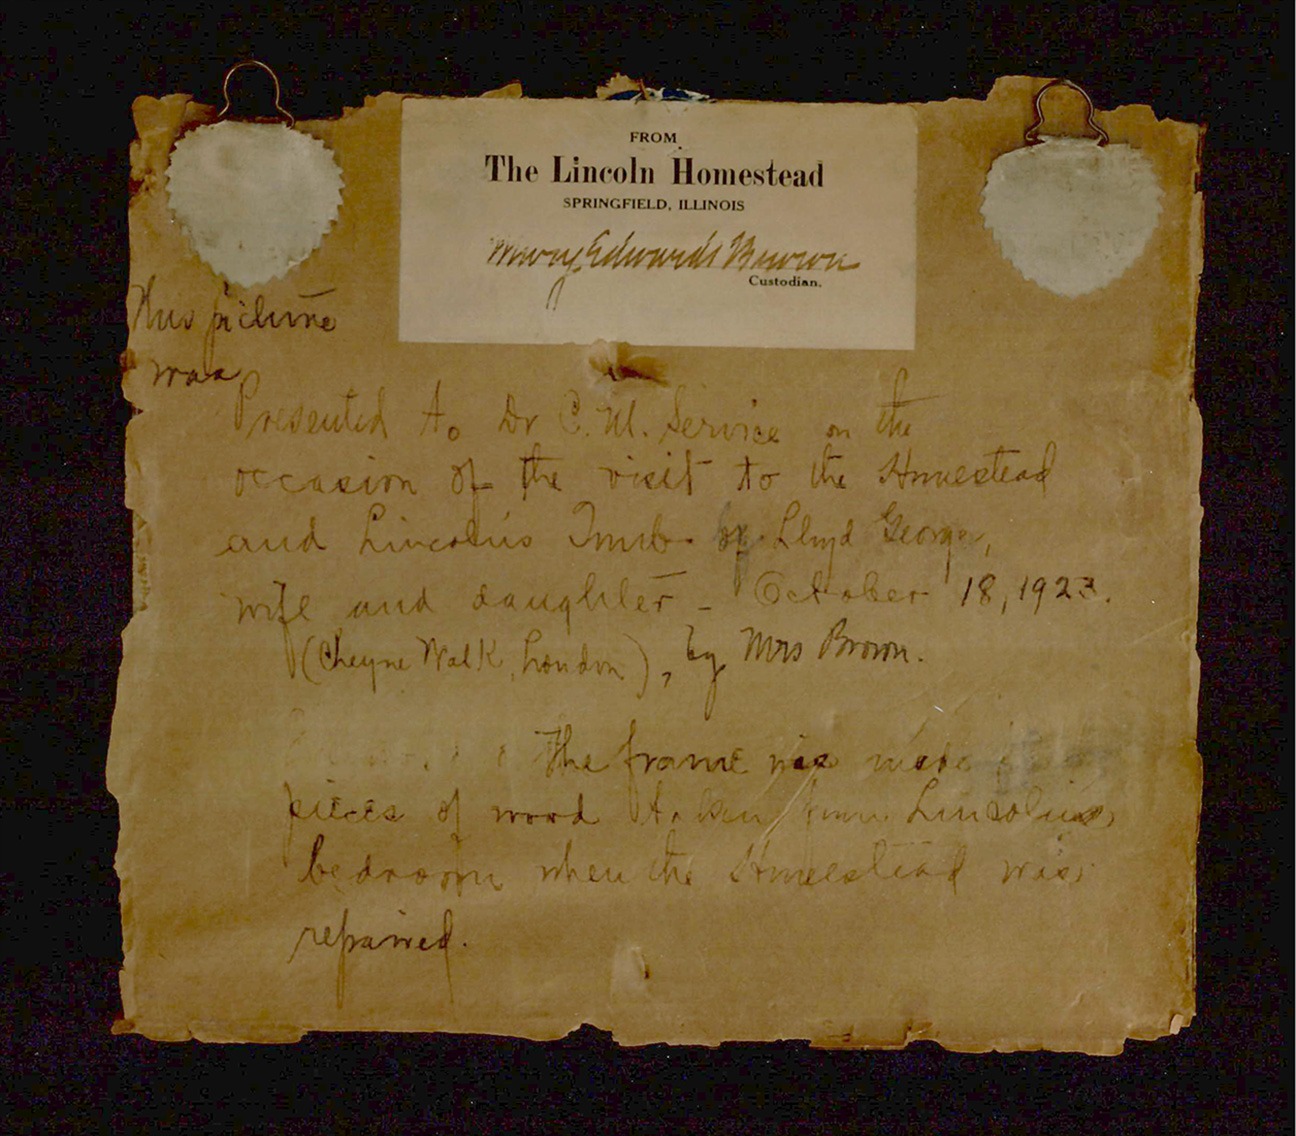 FROM
The Lincoln Homestead
SPRINGFIELD, ILLINOIS
Mary Edwards Brown
Custodian.
This picture
was
Presented to Dr C. M. Service on the
occasion of the visit to the Homestead
and Lincoln's Tomb by Lloyd George,
wife and daughter - October 18, 1923.
(Cheyne Walk, London), by Mrs Brown.
The frame was made
pieces of wood taken from Lincoln's
bedroom when the Homestead was
repaired.